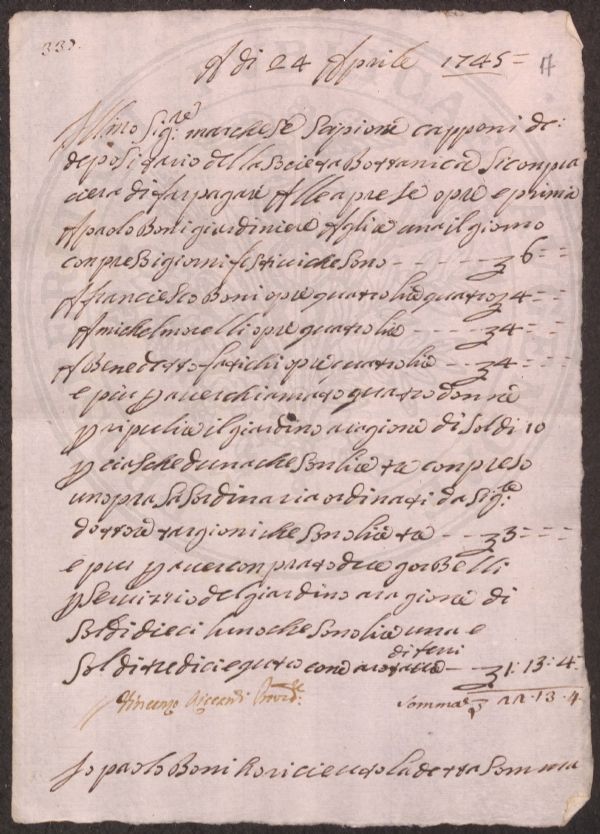 333.
A di 24 Aprile 1745 = 17
Ill.mo Sig.re marchese Scipione Capponi de:
depositario della Societa Bottanica Si conpia
ciera di far pagare Alle aprese opre e prima
A paolo Boni giardiniere A glire una il giorno
conpresi i giorni festivi che sono - - - - - - 6 = =
A franciesco Boni opre quatro lire quatro 4 = =
A michel morelli opre quatro lire - - - - 4 = =
A Benedetto fatichi opre quatro lire - - 4 = =
e piu p avere chiamato quatro donne
p ripulire il giardino a ragione di Soldi 10
p ciascheduna che Son lire tre conpreso
unopra Sa Sordinaria ordinati da Sig.re
dottore targioni che Sono lire tre - - - 3 = = =
e piu p aver conprato due gorBelli
p Servitio del giardino a ragione di
Soldi dieci luno che sono lire una e
Soldi tredici e quatro come di terri - - 1: 13: 4
Vincenzo Riccardi Provd.re Somma 22.13.4
Io paolo Boni ho ricieuto la detta Somma